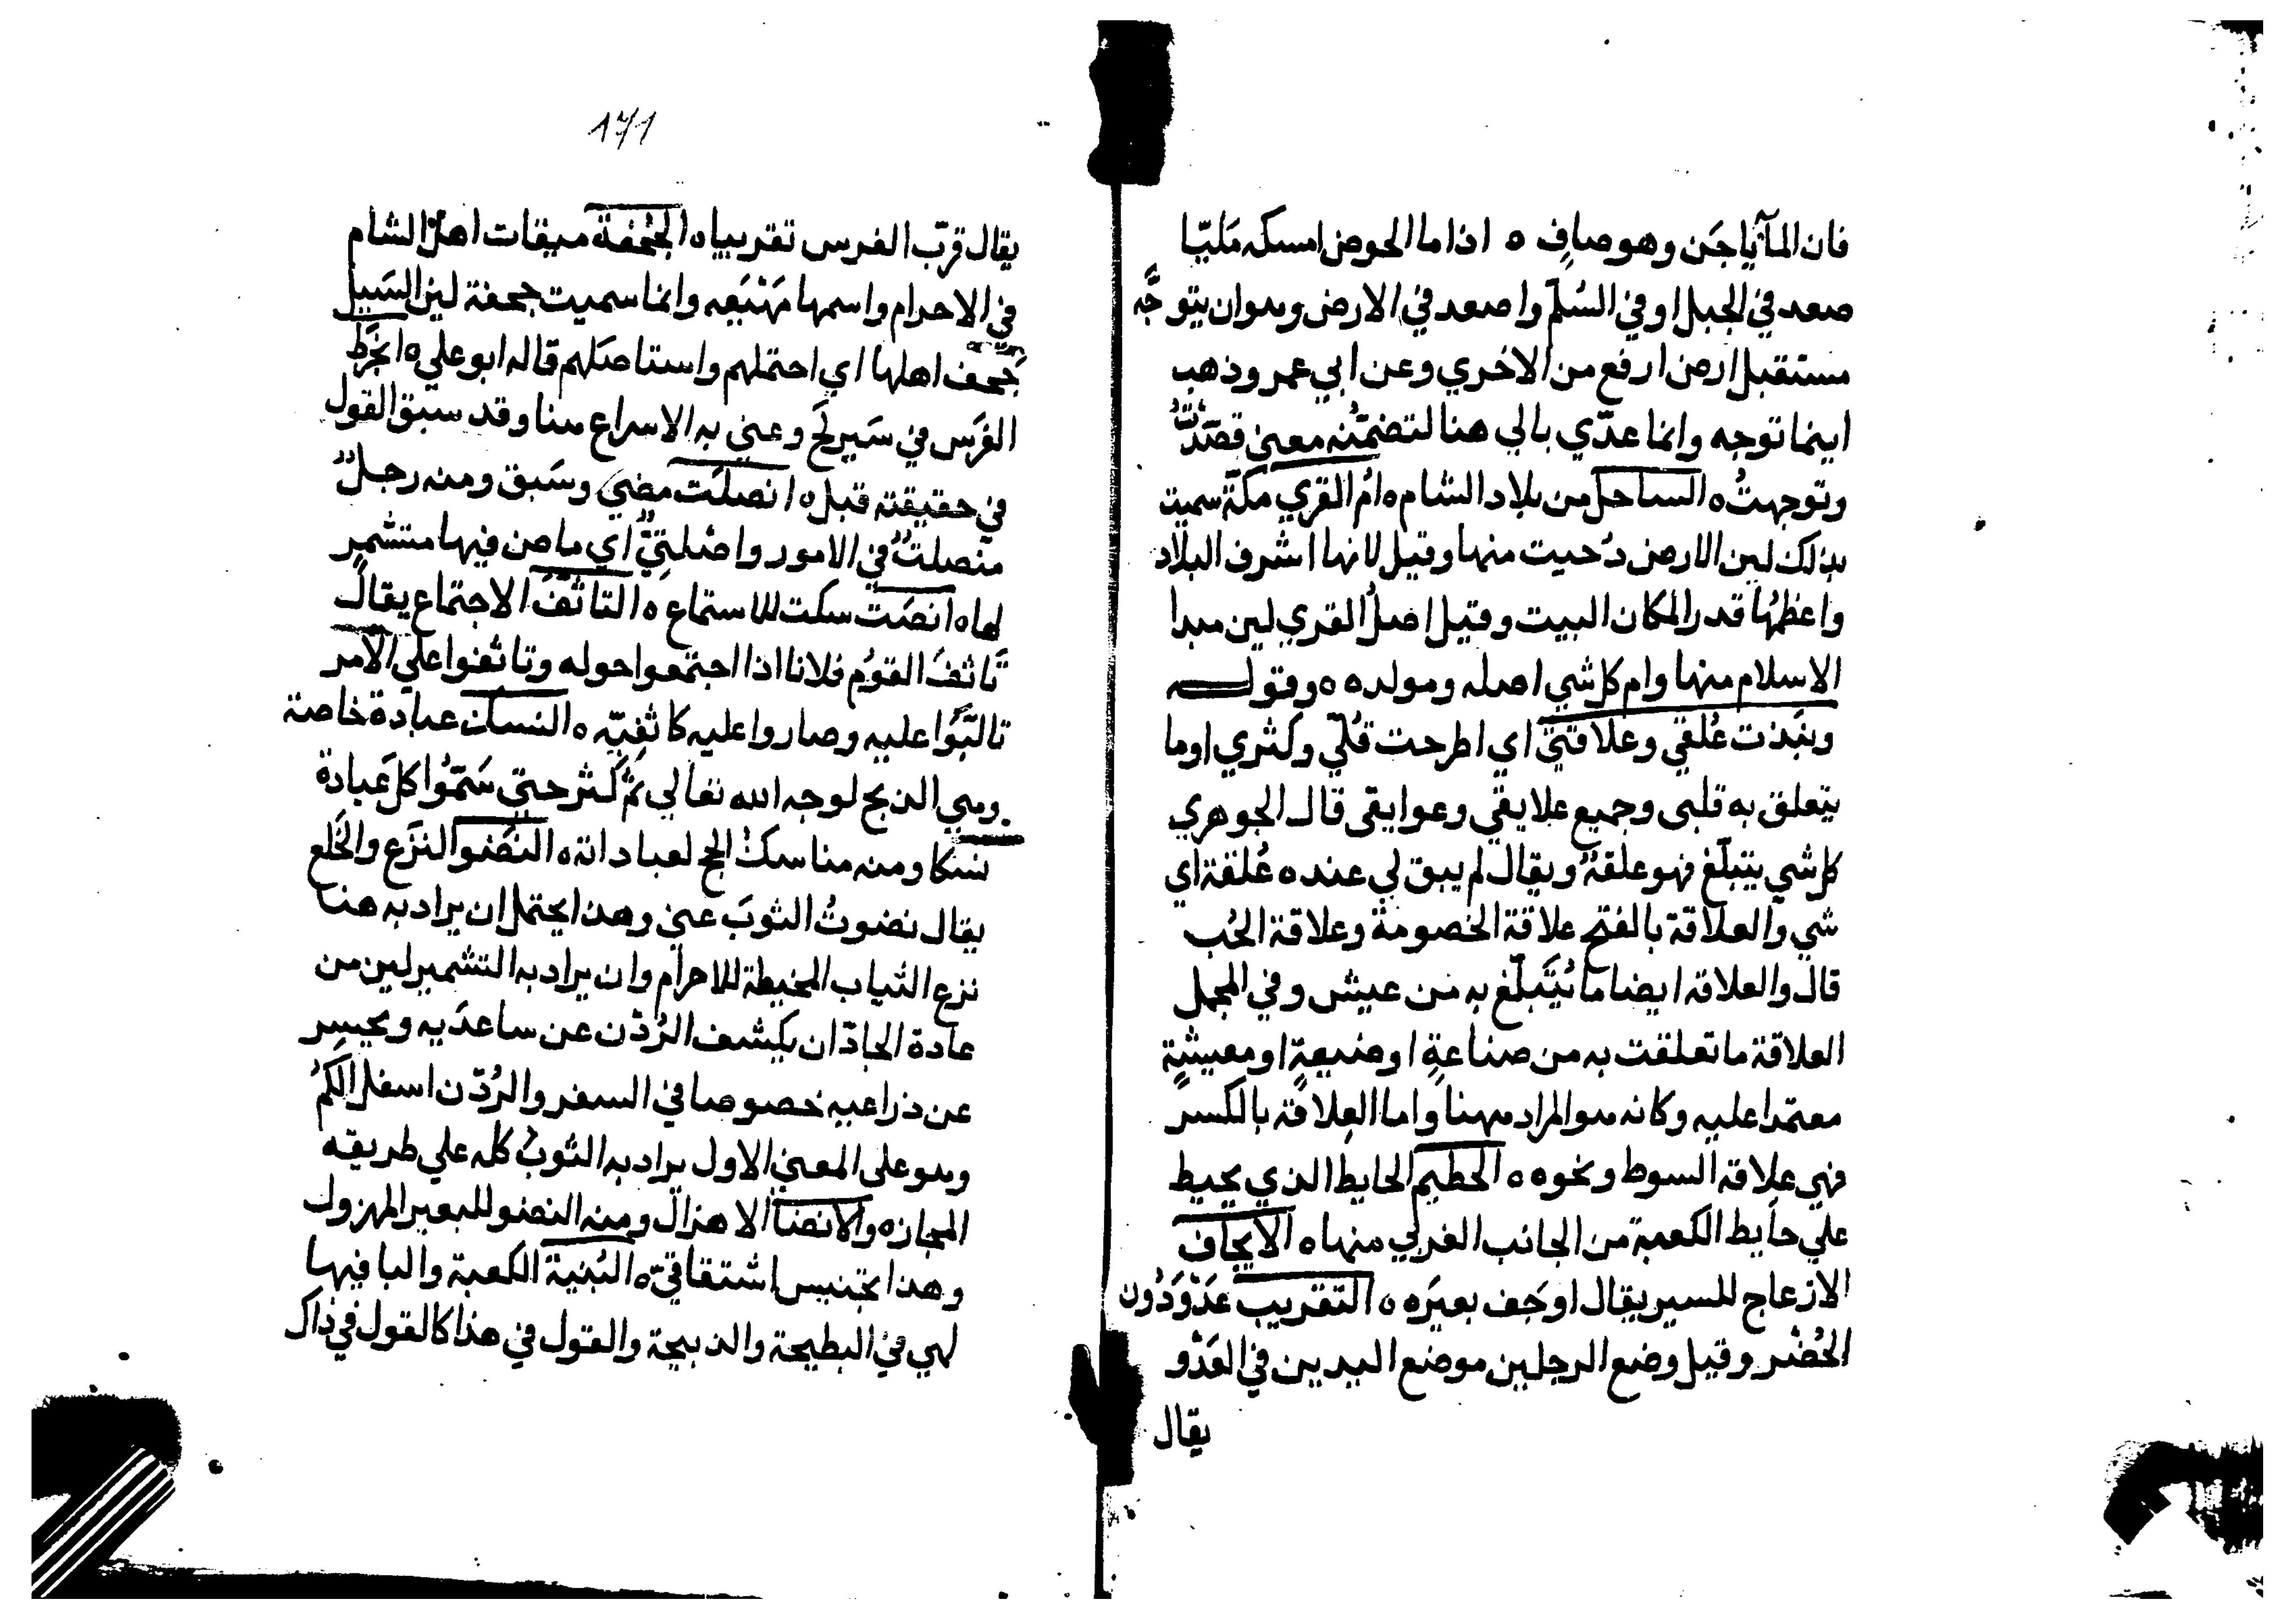 فان المآ ياجَن وهو صافٍ ه اذا ما الحوض امسكه مَليّا
صعد في الجبل او في السُلّم واصعد في الارض وهو ان يتوجَّه
مستقبل ارض ارفع من الاخري وعن ابي عمرو ذهب
اينما توجه وانما عدّي بالي هنا لتضمّنه معنى قصَدتُّ
وتوجهتُ ه الساحل من بلاد الشام ه امُ القري مكّة سميت
بذلك لين الارض دُحيت منها وقيل لانها اشرف البلاد
واعظمُها قدر المكان البيت وقيل اصلُ القري لين مبدا
الاسلام منها وام كل شي اصله ومولده ه وقولـــه
ونبَذت عُلقي وعلاقتيّ اي اطرحت قُلّي وكُثري اوما
يتعلق به قلبى وجميع علايقي وعوايقى قال الجوهري
كل شي يتبلّغ فهو علقةٌ ويقال لم يبق لي عنده عُلقة اي
شي والعلاقة بالفتح علاقة الخصومة وعلاقة الحُب
قال والعلاقه ايضا ما يُتَبلّغ به من عيش وفي المجمل
العلاقة ما تعلقت به من صناعةٍ او ضيعةٍ او معيشةٍ
معتمدا عليه وكانه هو المراد ههنا واما العِلاقة بالكسر
فهي علاقة السوط ونحوه ه الحَطيم الحايط الذي يحيط
علي حايط الكعبة من الجانب الغربي منها ه الايجاف
الازعاج للسير يقال اوجَف بعيرَه ه التقريب عَدْوٌ دُون
الحُضْر وقيل وضع الرجلين موضع اليدين في العَدْو
يقال
171
يقال قرّب الفرس تقريبا ه الجُحْفة ميقات اهل الشام
في الاحرام واسمها مَهْيَعه وانما سميت جحفة لين السَيل
جَحَف اهلها اي احتملهم واستاصَلهم قاله ابو علي ه انخرَط
الفرَس في سَيره لجّ وعني به الاسراع هنا وقد سبق القول
في حقيقته قبل ه انصلَت مضي وسَبق ومنه رجلٌ
منصلتٌ في الامور واصْلتيٌّ اي ماض فيها متشمر
لها ه انصَت سكت للاستماع ه التاثّفُ الاجتماع يقال
تَاثّفَ القوُم فلانا اذا اجتمعوا حوله وتاثفوا علي الامر
تالَّبُوا عليه وصاروا عليه كاثفيّه ه النسك عبادة خاصة
وهي الذبح لوجه الله تعالي ثم كَثر حتي سَمّوا كل عَبادة
نسكا ومنه مناسكُ الحج لعباداته ه النَضْو النَزع والخَلع
يقال نضوتُ الثوبَ عني وهذا يحتمل ان يراد به هنا
نزع الثياب المخيطة للاحرام وان يراد به التشمير لين من
عادة الجادّ ان يكشف الرُدْن عن ساعدَيه ويحسِر
عن ذراعيه خصوصا في السفر والرُدْن اسفل الكُمّ
وهو على المعني الاول يراد به الثوبُ كله علي طريقه
المجاز ه والانضا الاهزال ومنه النضو للبعير المهزول
وهذا تجنيس اشتقاقيّ ه البَنية الكعبة والبا فيها
لهي في البطيحة والذبيحة والقول في هذا كالقول في ذاك